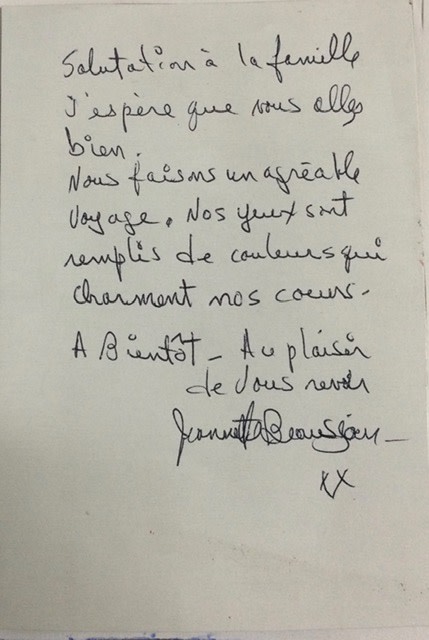 Salutation à la famille
J'espère que vous allez
bien.
Nous faisons un agréable
voyage. Nos yeux sont
remplis de couleurs qui
charment nos coeurs.
A Bientôt - Au plaisir
de vous revoir
Jeannette
xx